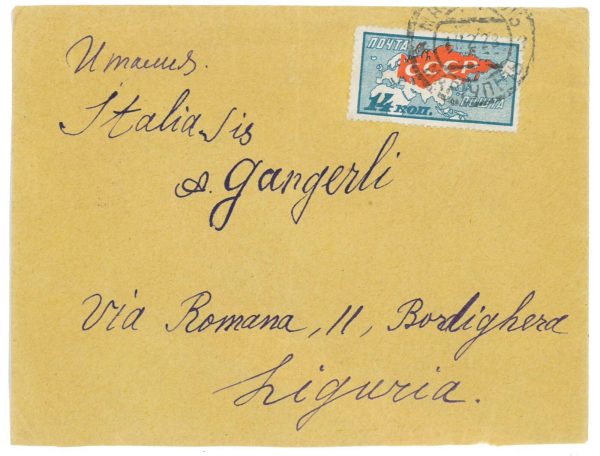 ПОЧТА
СССР
ПОЧТА
14 КОП.
Италия.
Italia
A. Gangerli
Via Romana, 11, Bordighera
Liguria.